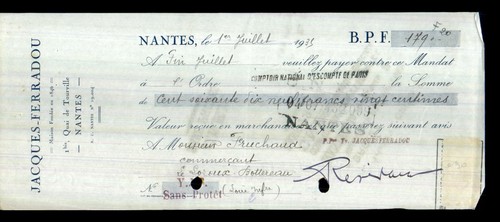 JACQUES-FERRADOU
Maison Fondée en 1896
1bis, Quai de Tourville
NANTES
NANTES, le 1er Juillet 1935 B. P. F. 179 20
A Fin Juillet veuillez payer contre ce Mandat
à l'Ordre COMPTOIR NATIONAL D'ESCOMPTE DE PARIS la Somme
de Cent soixante dix neuf francs vingt centimes
Valeur reçue en marchandises que passerez suivant avis
A Monsieur Fruchard
commerçant
Le Bottereau
P. Pon JACQUES-FERRADOU
No (Loire Infre)
Sans Protêt